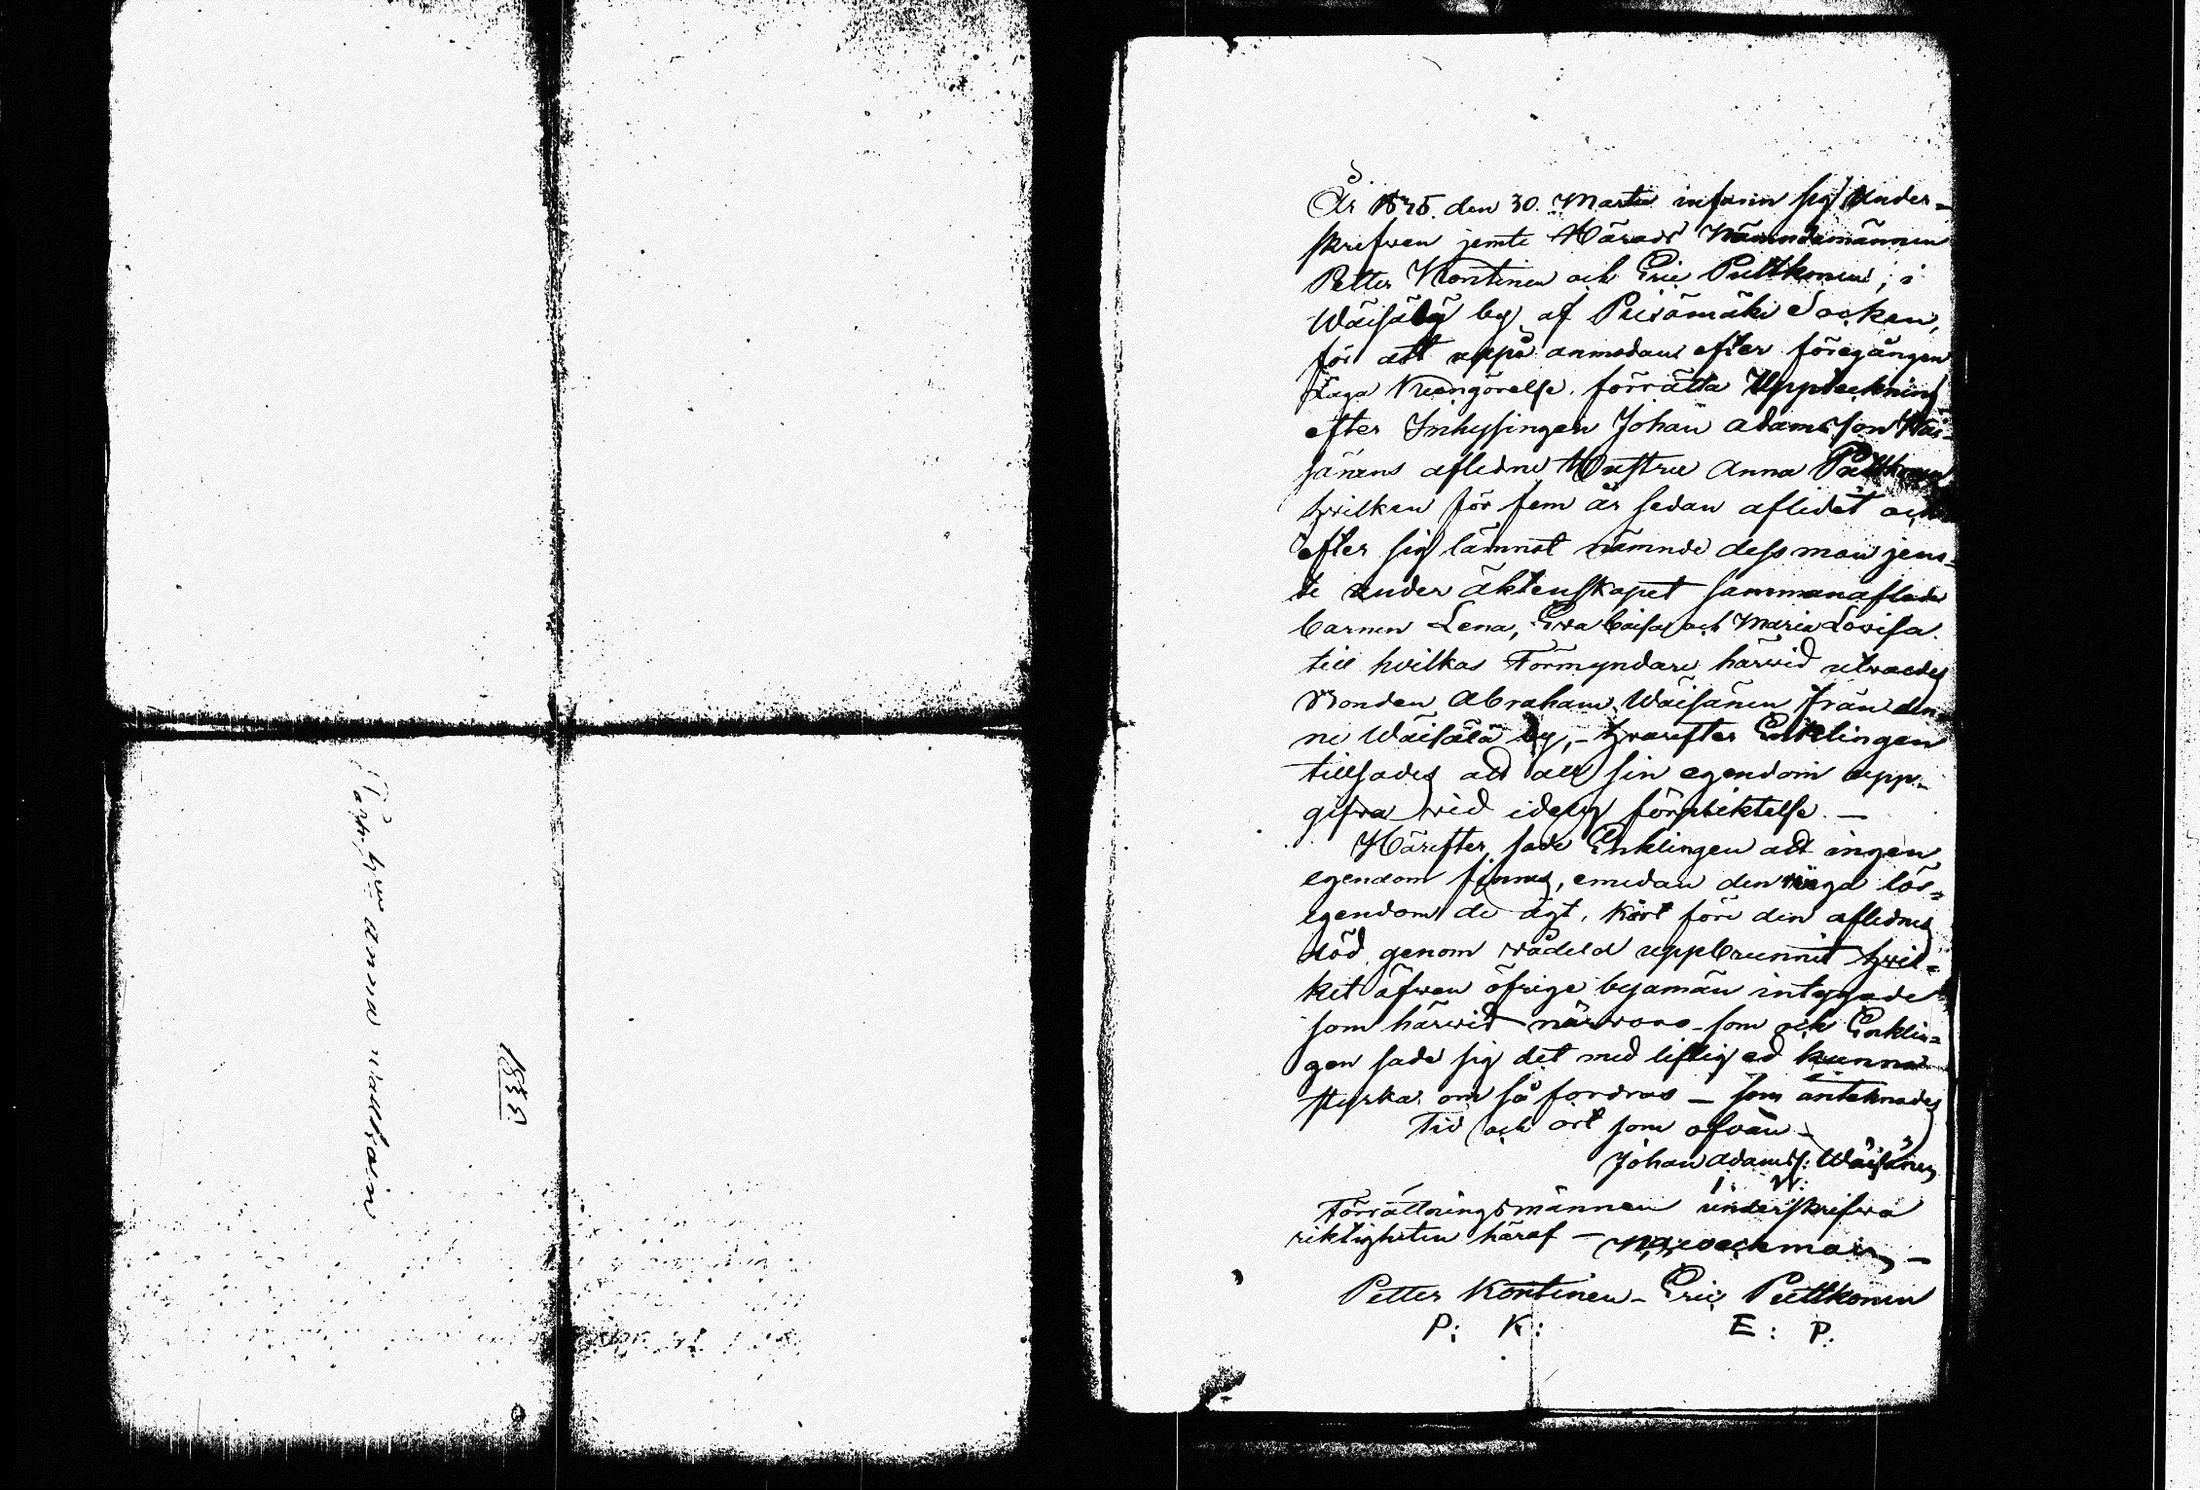 År den 30. Martii infann sig Under-
skrefwen jemte Härads Nämndemännen
Petter Kontinen och Eric Puttkonen, i
Wäisälä by af Socken,
för att uppå anmodan efter föregången
Laga kungörelse förrätta Uppteckning
efter Inhysingen Johan Adamsson Wäi-
sänens aflidne Hustru Anna
hwilken för fem år sedan aflidet och
efter sig lämnat nämnde dess man jem-
te under äktenskapet sammanaflade
barnen Lena, Ewa Caisa och Maria Lovisa.
till hvilkas Förmyndare härwid utwaldes
Bonden Abraham Wäisänen från den-
ne Wäisälä by, - hwarefter Enklingen
tillsades att all sin egendom upp-
gifwa wid edelig förpliktelse. —
Härefter sade Enklingen att ingen
egendom finnes, emedan den ringa lös-
egendom de ägt, kort före den aflidnes
död genom wådeld uppbrunnit hwil-
ket äfwen öfrige byamän intygade
som härwid närworo - som och Enklin-
gen sade sig det med liflig ed kunna
styrka om så fordras — som antecknades
Tid och ort som ofwan -
Johan Adamss: Wäisänen
I: W:
Förrättningsmännen underskrifwa
riktigheten häraf —
Petter Kontinen - Eric Puttkonen
P: K: E: P.
Anna